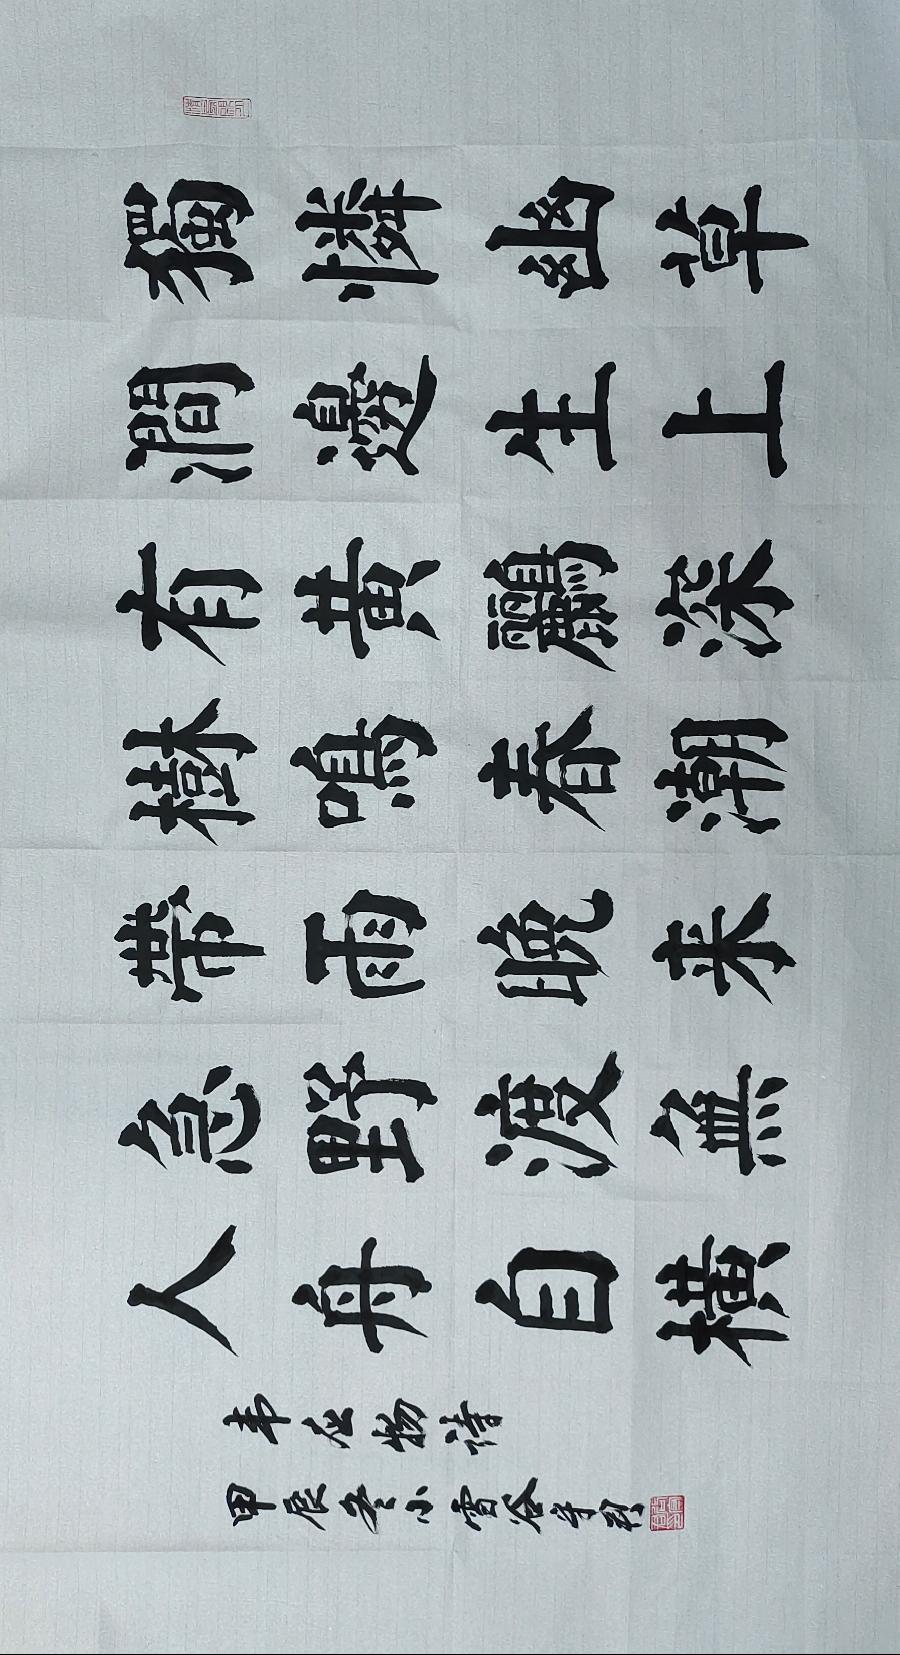 獨憐幽草
澗邊生上
有黄鸝深
樹鳴春潮
帶雨晚来
急野渡無
人舟自横
韦应物诗
甲辰冬小雪